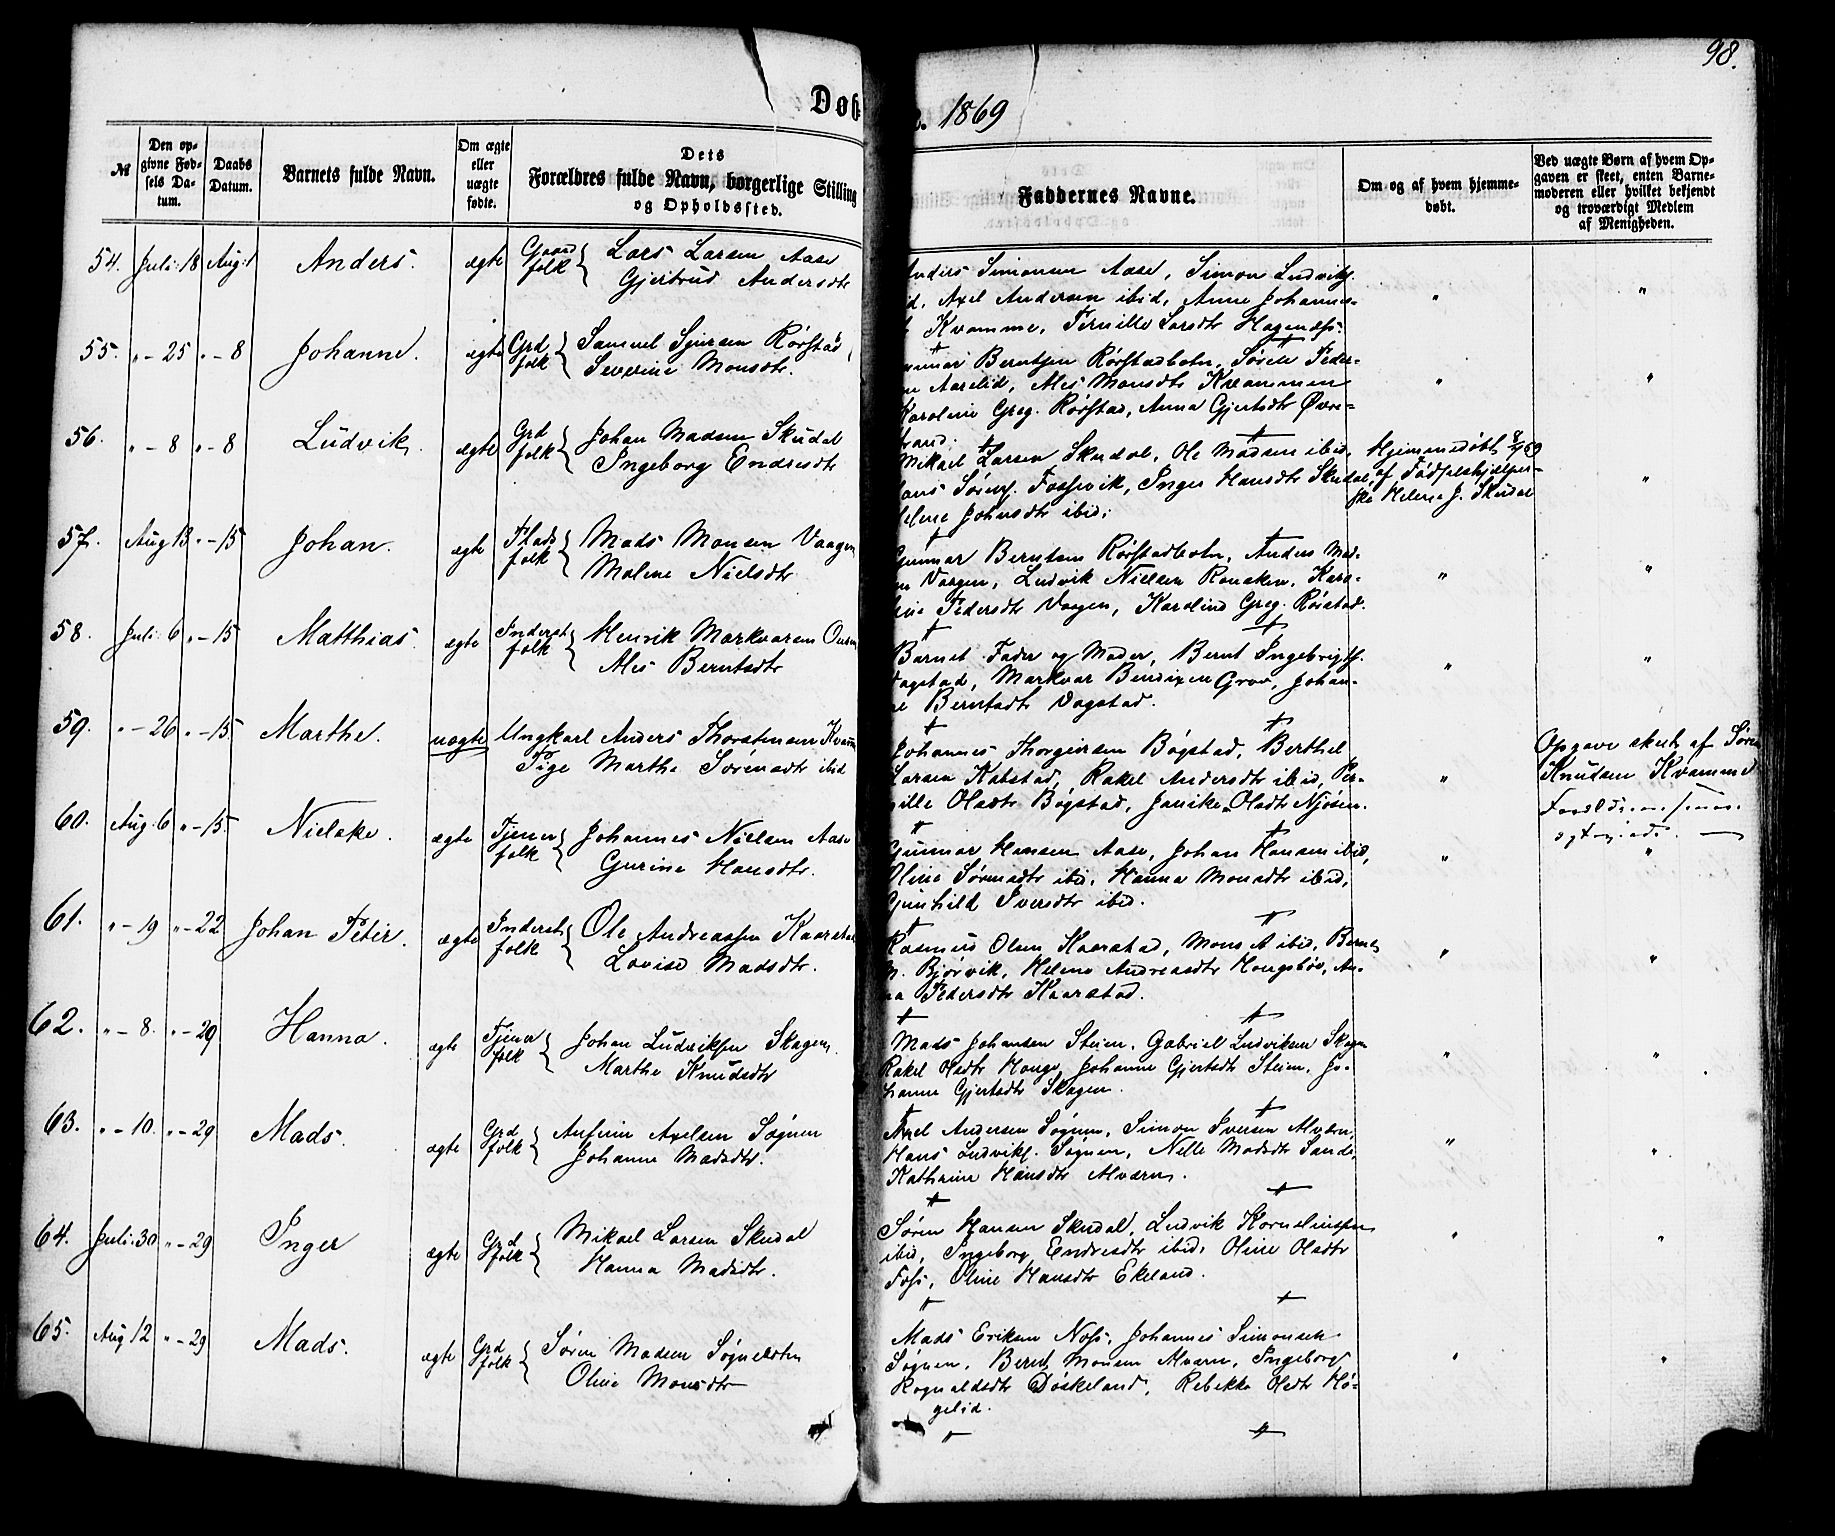 98.
Døb
e. 1869
№
Den op-
givne Fød-
sels Da-
tum.
Daabs
Datum.
Barnets fulde Navn.
Om ægte
eller
uægte
fødte.
Dets
Forældres fulde Navn, borgerlige Stilling
og Opholdssted.
Faddernes Navne.
Om og af hvem hjemme-
døbt.
Ved uægte Børn af hvem Op-
gaven er skeet, enten Barne-
moderen eller hvilket bekjendt
og troværdigt Medlem
af Menigheden.
54. Juli 18 Aug. 1 Anders. ægte Gaard folk { Lars Larsen Aase
Gjertrud Andersdtr
Anders Simonsen Aase, Simon Ludviks.
id, Axel Andersen ibid, Anne Johannes-
Kvamme, Pernille Larsdtr Hagenæss.
" "
55. " - 25 " - 8 Johanne. ægte Grd folk { Samuel Sjursen Rørstad
Severine Monsdtr.
Gunnar Berntsen Rørstadbotn, Søren Peder-
en Aarelid, Ales Monsdtr Kvammen
Karoline Greg. Rørstad, Anna Gjertsdtr Øvre-
strand.
" "
56. " - 8 " - 8 Ludvik. ægte Grd folk { Johan Madsen Skudal
Ingeborg Endresdtr
Mikael Larsen Skudal, Ole Madsen ibid,
Hans Sørens. Fossevik, Inger Hansdtr Skudal,
Helene Johnsdtr ibid.
Hjemmedøbt 8/7 69
af Fødselshjælper-
ske Helene J. Skudal
"
57. Aug 13 " - 15 Johan. ægte Plads folk { Mads Monsen Vaagen
Malene Nielsdtr
Gunnar Berntsen Rørstadbotn, Anders Mad-
en Vaagen, Ludvik Nielsen Roneken, Karo-
line Pedersdtr Vaagen, Karoline Greg. Rørstad.
" "
58. Juli 6 " - 15 Matthias. ægte Inderst folk { Henrik Markvarsen
Ales Berntsdtr
Barnets Fader og Moder, Bernt Ingebrigts.
Vagstad, Markvar Bendixen Grov, Johan-
ne Berntsdtr Vagstad.
" "
59. " - 26 " - 15. Marthe. uægte Ungkarl Anders Thorstensen Kvamm
Pige Marthe Sørensdtr ibid
Johannes Thorgersen Bøgstad, Berthel
Larsen Kabstad, Rakel Andersdtr ibid, Per-
nille Olsdtr Bøgstad, Janike Olsdtr Njøsen.
"
Opgave skeet af Søren
Knudsen Kvamme
60. Aug. 6 " - 15. Nielske. ægte Tjener folk { Johannes Nielsen Aase
Gurine Hansdtr.
Gunnar Hansen Aase, Johan Hansen ibid,
Oline Sørensdtr ibid, Hanna Monsdtr ibid,
Gunhild Iversdtr ibid.
" "
61. " - 19 " - 22 Johan Peter. ægte Inderst folk { Ole Andreassen Kaarstad
Lovise Madsdtr.
Rasmus Olsen Kaarstad, Mons A. ibid, Bernt
M. Bjørvik, Helene Andreasdtr Hongsbøe, An-
na Pedersdtr Kaarstad.
" "
62. " - 8. " - 29 Hanna. ægte Tjener folk { Johan Ludviksen Skagen
Marthe Knudsdtr
Mads Johansen Steien, Gabriel Ludviksen Skagen
Rakel Olsdtr Hauge, Johanne Gjertsdtr Steien, Jo-
hanne Gjertsdtr Skagen.
" "
63. " - 10. " - 29 Mads. ægte Grd folk { Anfinn Axelsen Sognen
Johanne Madsdtr.
Axel Andersen Sognen, Simon Iversen Alværn,
Hans Ludviks. Sognen, Nelle Madsdtr Sande,
Kathrine Hansdtr Alværn.
" "
64. Juli 30 " - 29 Inger ægte Grd folk { Mikael Larsen Skudal
Hanna Madsdtr.
Søren Hansen Skudal, Ludvik Korneliussen
ibid, Ingeborg Endresdtr ibid, Oline Olsdtr
Foss, Oline Hansdtr Ekeland.
" "
65. Aug 12 " - 29 Mads. ægte Grd folk { Søren Madsen
Oline Monsdtr
Mads Eriksen Noss, Johannes Simonsen
Sognen, Bernt Monsen Alværn, Ingeborg
Rognaldsdtr Døskeland, Rebekka Olsdtr Hø-
gelid.
" "